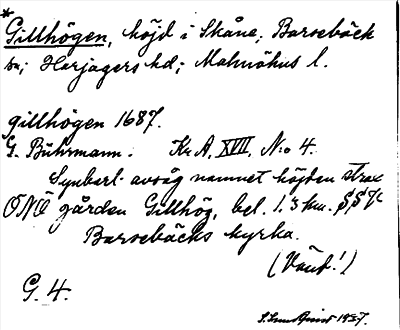 * Gillhögen, höjd i Skåne; Barsebäck
sn; Harjagers hd; Malmöhus l.
gillhögen 1687.
G. Buhrmann. Kr A, XVII, N:o 4.
Synbarl. avsåg namnet höjden strax
ONO gården Gillhög, bel. 1.3 km.
Barsebäcks kyrka.
(Vänt!)
G. 4.
1927.